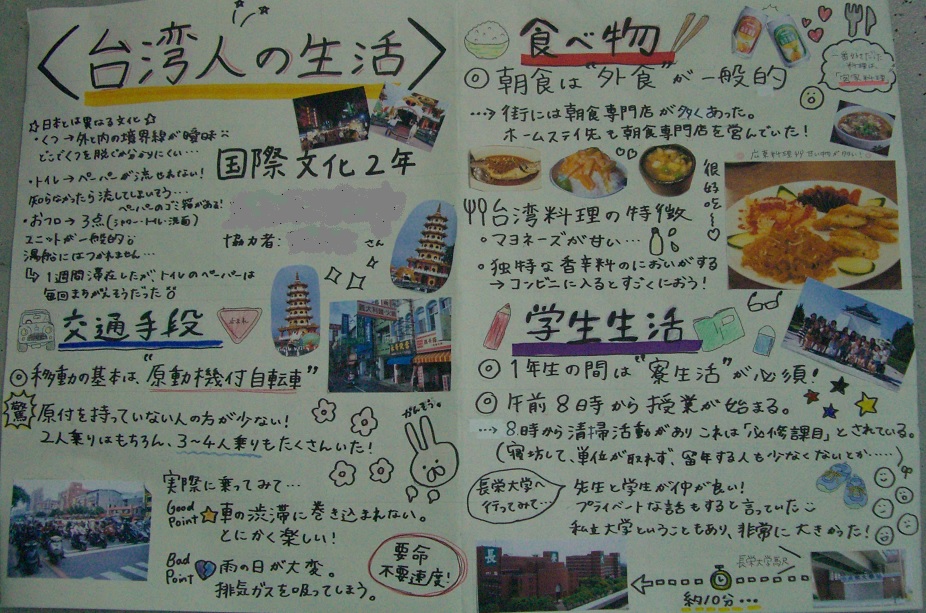 〈台湾人の生活〉
☆日本とは異なる文化☆
・くつ→外と内の境界線が曖昧
どこでくつを脱ぐか分かりにくい…
・トイレ→ペーパーが流せない!
知らなかったら流してしまいそう…
ペーパーのゴミ箱がある!
・おフロ→3点(シャワー・トイレ・洗面)
ユニットが一般的
湯船にはつかれません…
1週間滞在したが、トイレのペーパーは
毎回まちがえそうだった
国際文化2年
協力者:
さん
交通手段
とまれ
◎移動の基本は、"原動機付自転車"
驚
原付を持っていない人の方が少ない!
2人乗りはもちろん、3〜4人乗りもたくさんいた!
かんそう。
実際に乗ってみて…
Good Point☆車の渋滞に巻き込まれない。
とにかく楽しい!
Bad Point 雨の日が大変。
排気ガスを吸ってしまう。
要命
不要速度!
食べ物
一番好きだった
料理は、
「客家料理」
◎朝食は"外食"が一般的
…→街には朝食専門店が多くあった。
ホームステイ先も朝食専門店を営んでいた!
很好吃〜♡
台湾料理の特徴
・マヨネーズが甘い…
・独特な香辛料のにおいがする
→コンビニに入るとすごくにおう!
学生生活
◎1年生の間は"寮生活"が必須!
◎午前8時から授業が始まる。
…→8時から清掃活動があり、これは「必修課目」とされている。
(寝坊して、単位が取れず、留年する人も少なくないとか……)
長栄大学へ
行ってみて…
先生と学生が仲が良い!
プライベートな話もすると言っていた
私立大学ということもあり、非常に大きかった!
長
長栄大学駅
約10分…